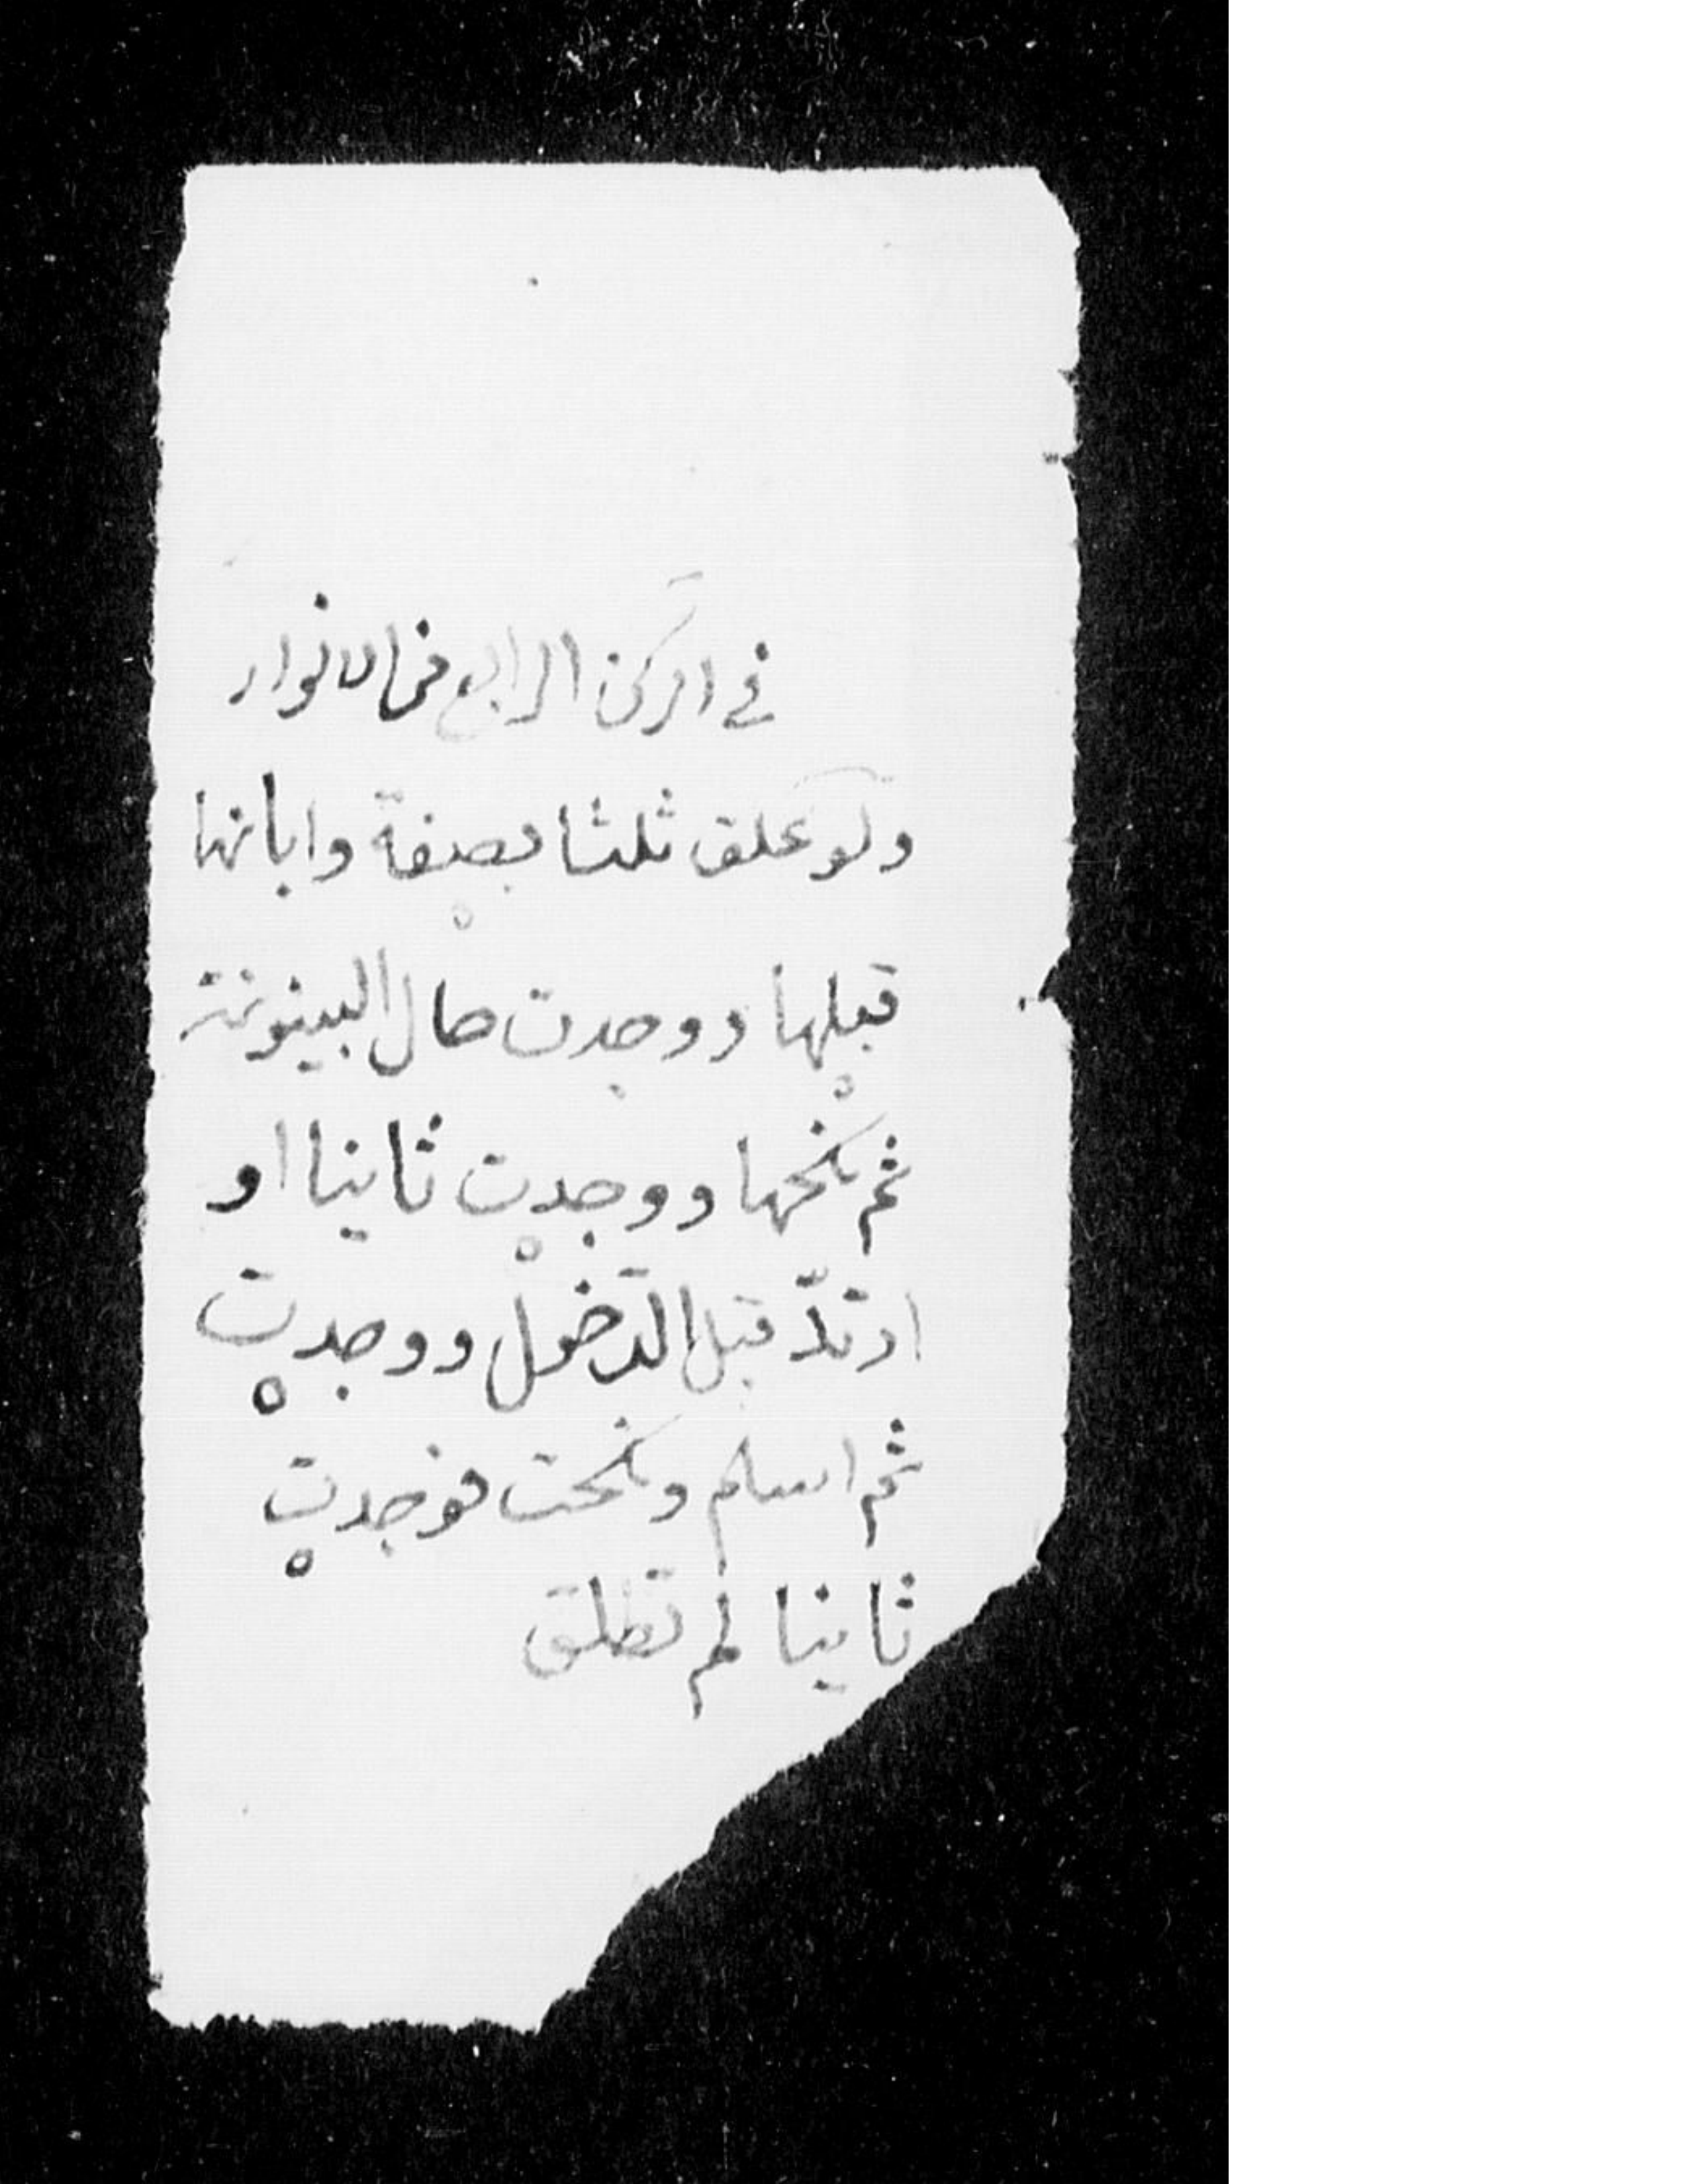 في الركن الرابع من الانوار
ولو علق ثلثا بصفة وابانها
قبلها ووجدت حال البينونة
ثم نكحها ووجدت ثانيا او
ارتدّ قبل الدخول ووجدت
ثم اسلم ونكحت فوجدت
ثانيا لم تطلق